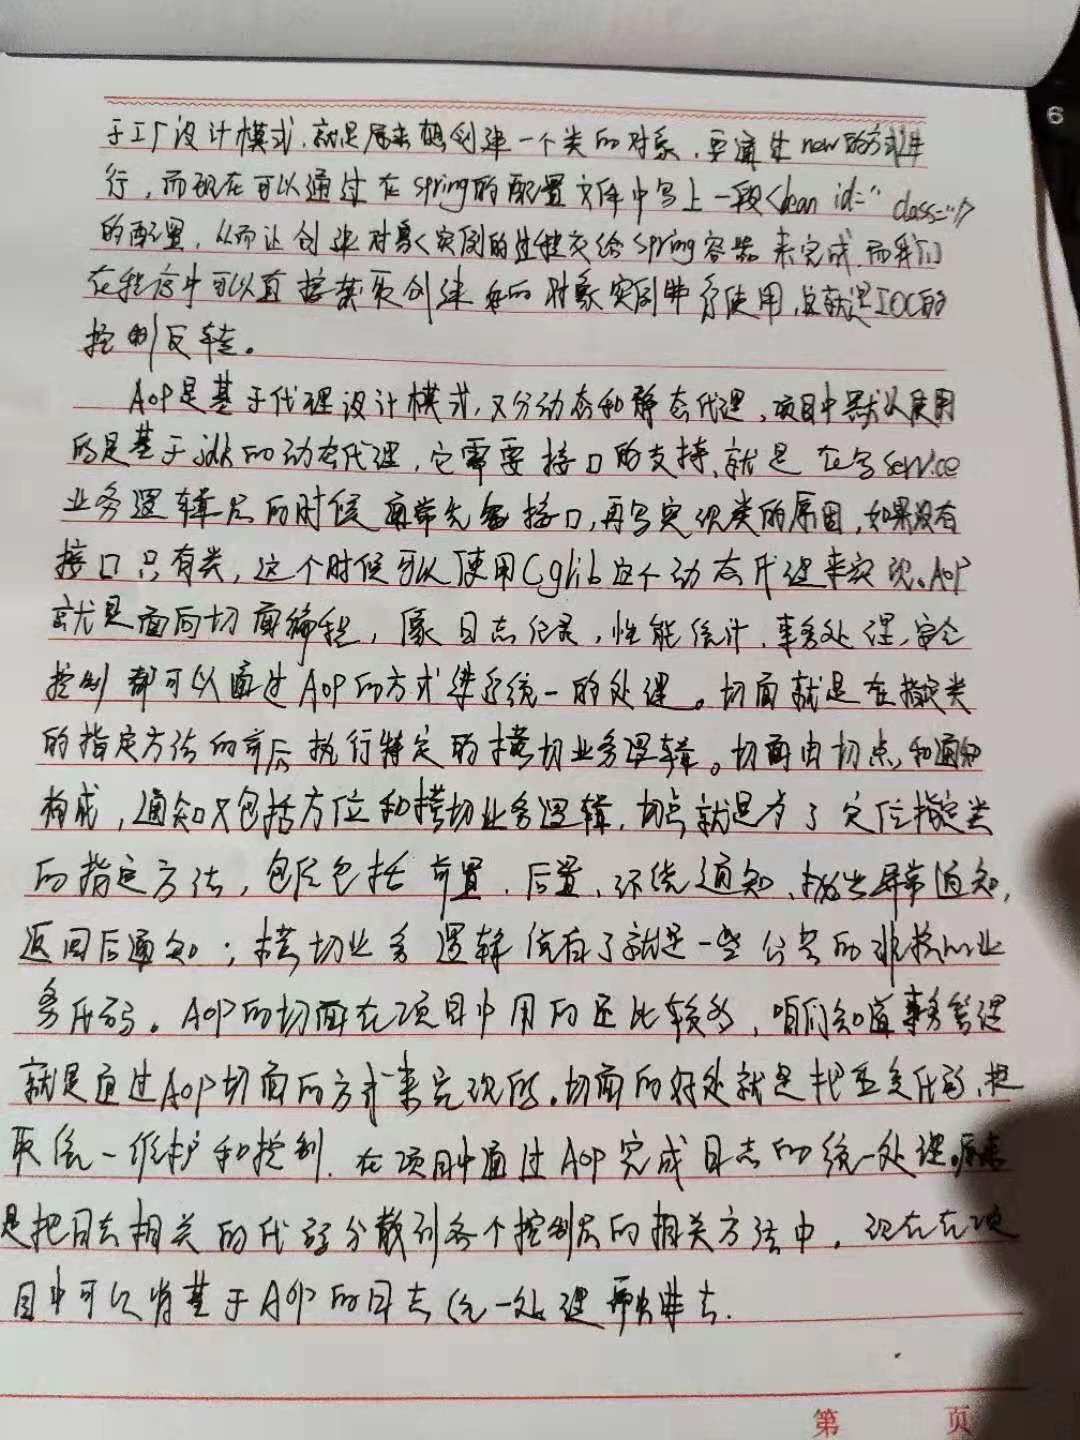 于工厂设计模式，就是原来想创建一个类的对象，要通过new的方式进
行，而现在可以通过在Spring的配置文件中写上一段<bean id="" class=""/>
的配置，从而让创建对象实例的过程交给Spring容器来完成，而我们
在程序中可以直接获取创建好的对象实例进行使用，这就是IOC的
控制反转。
AOP是基于代理设计模式，又分动态和静态代理，项目中默认使用
的是基于jdk的动态代理，它需要接口的支持，就是在写service
业务逻辑层的时候通常先写接口，再写实现类的原因，如果没有
接口只有类，这个时候可以使用Cglib这个动态代理来实现。AOP
就是面向切面编程，像日志记录，性能统计，事务处理，安全
控制都可以通过AOP的方式进行统一的处理。切面就是在指定类
的指定方法的前后执行特定的横切业务逻辑。切面由切点和通知
构成，通知又包括方位和横切业务逻辑，切点就是为了定位指定类
的指定方法，包括前置，后置，环绕通知，抛出异常通知，
返回后通知；横切业务逻辑就是一些公共的非核心业
务代码。AOP的切面在项目中用的还比较多，咱们知道事务管理
就是通过AOP切面的方式来实现的。切面的好处就是把重复代码，提
取统一维护和控制，在项目中通过AOP完成日志的统一处理。原来
是把日志相关的代码分散到各个控制层的相关方法中，现在在项
目中可以将基于AOP的日志统一处理
6
第 页